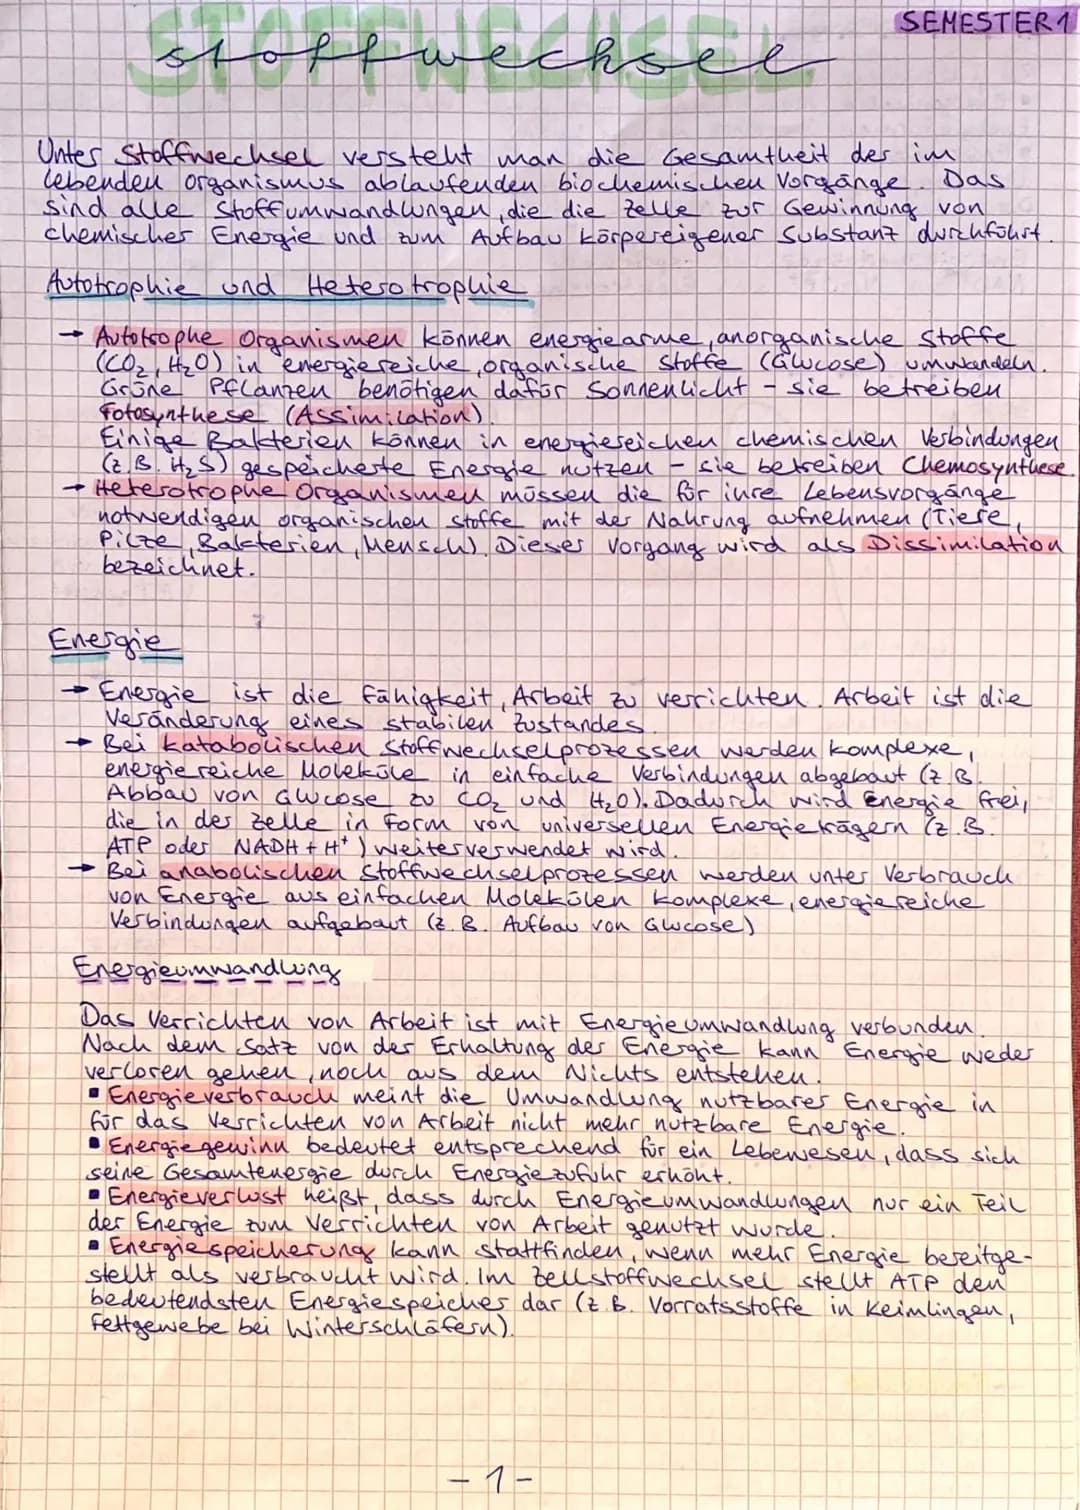 SEMESTER 1
STOFFWECHSEL
stoffwechsel
Unter Stoffwechsel versteht man die Gesamtheit der im
lebenden Organismus ablaufenden biochemischen Vorgänge. Das
sind alle Stoffumwandlungen, die die Zelle zur Gewinnung von
chemischer Energie und zum Aufbau körpereigener Substanz durchführt.
Autotrophie und Heterotrophie
→ Autotrophe Organismen können energiearme, anorganische Stoffe
(CO₂, H₂O) in energiereiche, organische Stoffe (Glucose) umwandeln.
Grüne Pflanzen benötigen dafür Sonnenlicht - sie betreiben
Fotosynthese (Assimilation).
Einige Bakterien können in energiereichen chemischen Verbindungen
(z.B. H₂S) gespeicherte Energie nutzen - sie betreiben Chemosynthese.
→ Heterotrophe Organismen müssen die für ihre Lebensvorgänge
notwendigen organischen Stoffe mit der Nahrung aufnehmen (Tiere,
Pilze, Bakterien, Mensch). Dieser Vorgang wird als Dissimilation
bezeichnet.
Energie
→ Energie ist die Fähigkeit, Arbeit zu verrichten. Arbeit ist die
Veränderung eines stabilen Zustandes.
→ Bei katabolischen Stoffwechselprozessen werden komplexe,
energiereiche Moleküle in einfache Verbindungen abgebaut (z.B.
Abbau von Glucose zu CO₂ und H₂O). Dadurch wird Energie frei,
die in der Zelle in Form von universellen Energieträgern (z.B.
ATP oder NADH + H⁺) weiterverwendet wird.
→ Bei anabolischen Stoffwechselprozessen werden unter Verbrauch
von Energie aus einfachen Molekülen komplexe, energiereiche
Verbindungen aufgebaut (z.B. Aufbau von Glucose)
Energieumwandlung
Das Verrichten von Arbeit ist mit Energieumwandlung verbunden.
Nach dem Satz von der Erhaltung der Energie kann Energie weder
verloren gehen, noch aus dem Nichts entstehen.
▪ Energieverbrauch meint die Umwandlung nutzbarer Energie in
für das Verrichten von Arbeit nicht mehr nutzbare Energie.
▪ Energiegewinn bedeutet entsprechend für ein Lebewesen, dass sich
seine Gesamtenergie durch Energiezufuhr erhöht.
▪ Energieverlust heißt, dass durch Energieumwandlungen nur ein Teil
der Energie zum Verrichten von Arbeit genutzt wurde.
▪ Energiespeicherung kann stattfinden, wenn mehr Energie bereitge-
stellt als verbraucht wird. Im Zellstoffwechsel stellt ATP den
bedeutendsten Energiespeicher dar (z.B. Vorratsstoffe in Keimlingen,
Fettgewebe bei Winterschläfern).
- 1 -